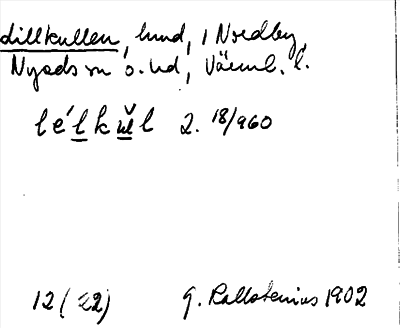 dillkullen, lund, i Nordby,
Nyeds sn o. hd, Värml. l.
lélkŭl 2. 18/960
12 (22) G. Kallstenius 1902